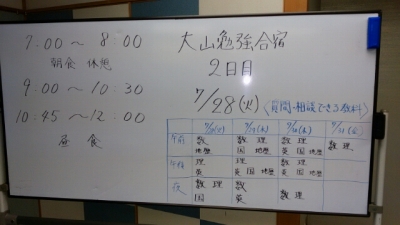 7:00 〜 8:00
朝食 休憩
9:00 〜 10:30
10:45 〜 12:00
昼 食
大山勉強合宿
2日目
7/28(火)
〈質問・相談できる教科〉
7/28(火) 7/29(水) 7/30(木) 7/31(金)
午前 数 数 理 数 理 数 理
地歴 英 国 地歴 英 国 地歴
午後 数 理 数 理 数 理
英 英 国 地歴 英 国 地歴
夜 数 理 数 数 理
国 英